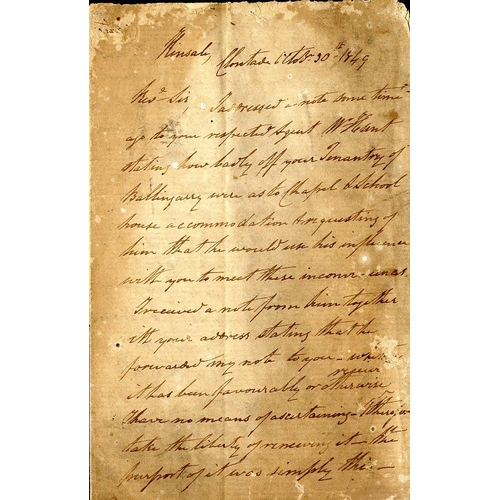 Kinsale, October 30th 1849
Revd. Sir I addressed a note some time
ago to your respected Agent Mr Hunt
stating how badly off your Tenantry of
Ballingarry were as to Chapel & School
house accommodation & requesting of
him that he would use his influence
with you to meet these
I received a note from him together
with your address stating that he
forwarded my note to you —
received
it has been favourably or otherwise
I have no means of ascertaining — I
take the liberty of renewing it — the
purport of it was simply this —